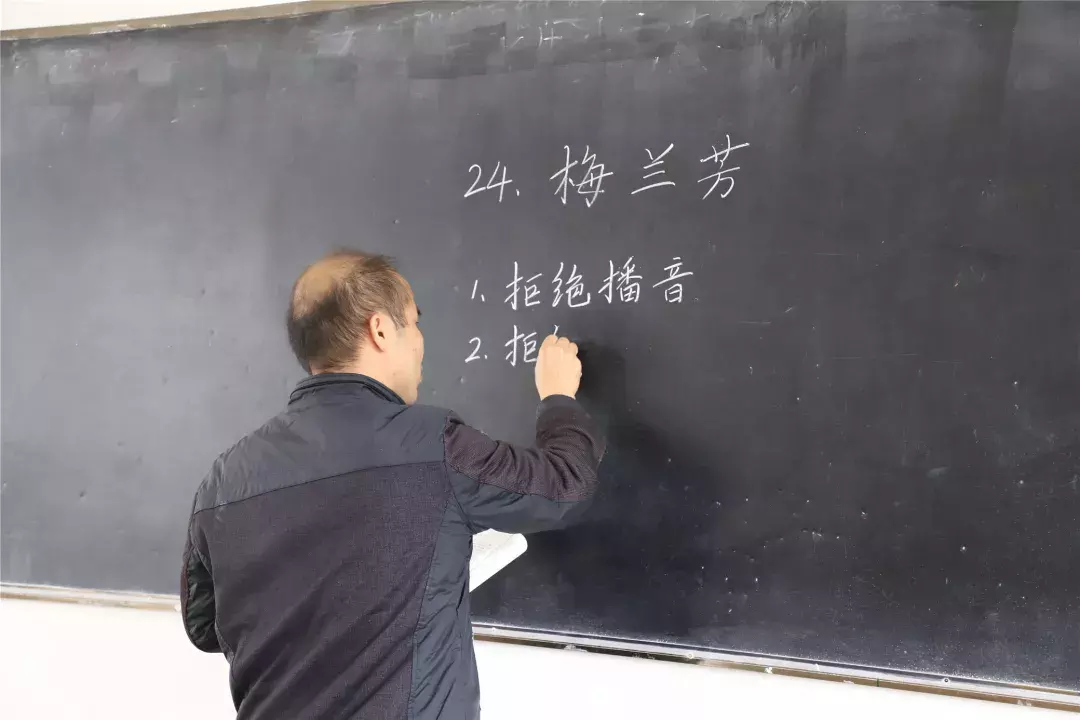 24. 梅兰芳
1. 拒绝播音
2. 拒